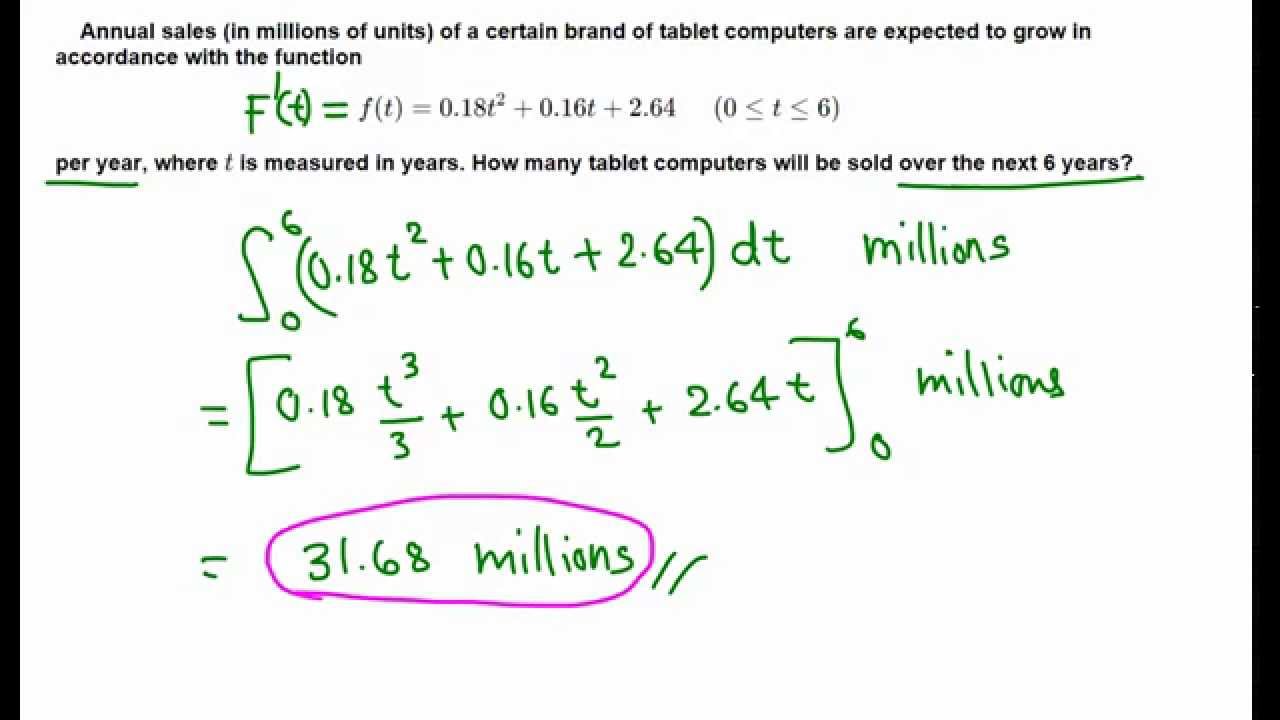 Annual sales (in millions of units) of a certain brand of tablet computers are expected to grow in
accordance with the function
F'(t) = f(t) = 0.18t² + 0.16t + 2.64 (0 ≤ t ≤ 6)
per year, where t is measured in years. How many tablet computers will be sold over the next 6 years?
∫₀⁶ (0.18t² + 0.16t + 2.64) dt millions
= [0.18 t³/3 + 0.16 t²/2 + 2.64 t]₀⁶ millions
= 31.68 millions //